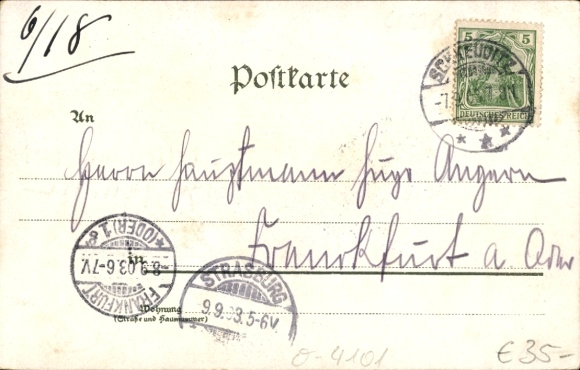 6/18
5 5
DEUTSCHES REICH
SCHKEUDITZ
* * *
Postkarte
An
Herrn Hauptmann Hugo Angern
Frankfurt a Oder
in
*(ODER)1*a
8.9.03.6-7V.
FRANKFURT
STRASSBURG
9.9.03.5-6V
Wohnung
(Straße und Hausnummer)
O-4101
€35-